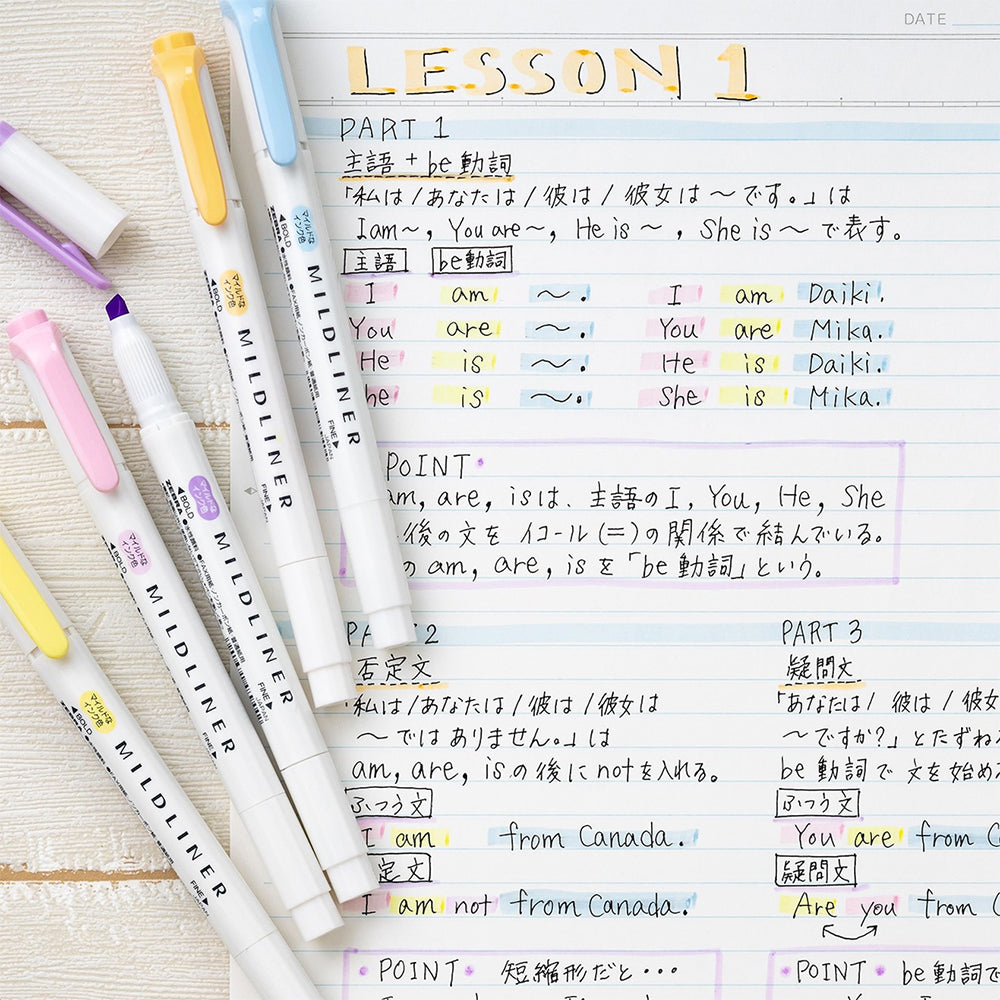 DATE
LESSON 1
PART 1
主語 + be動詞
「私は / あなたは / 彼は / 彼女は ～ です。」は
I am ～, You are ～, He is ～, She is ～ で表す。
主語 be動詞
I am ～. I am Daiki.
You are ～. You are Mika.
He is ～. He is Daiki.
he is ～. She is Mika.
POINT
am, are, isは、主語の I, You, He, She
後の文を イコール (=) の関係で結んでいる。
の am, are, isを「be動詞」という。
PART 2
否定文
私は / あなたは / 彼は / 彼女は
～ ではありません。」は
am, are, isの後に notを入れる。
ふつう文
I am from Canada.
定文
I am not from Canada.
POINT 短縮形だと・・・
PART 3
疑問文
「あなたは / 彼は / 彼女
～ですか?」とたずね
be動詞で 文を始め
ふつう文
You are from C
疑問文
Are you from C
POINT be動詞で
マイルドなインク色
BOLD
ZEBRA
MILDLINER
FINE
JAPAN
マイルドなインク色
BOLD
MILDLINER
FINE
マイルドなインク色
BOLD
ZEBRA
MILDLINER
FINE
JAPAN
マイルドなインク色
BOLD
MILDLINER
FINE
マイルドなインク色
BOLD
MILDLINER
FINE